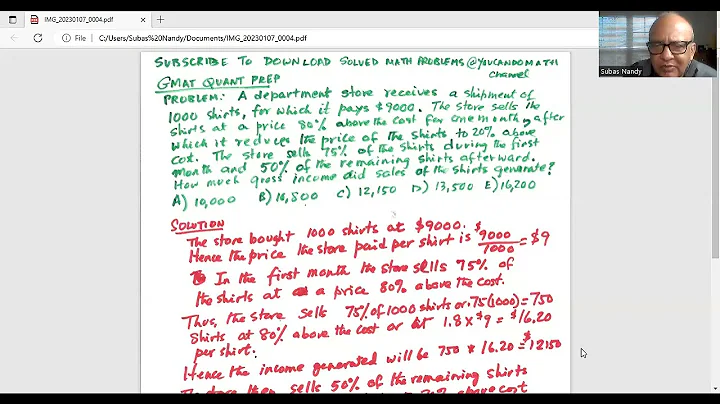 IMG_20230107_0004.pdf
File
C:/Users/Subas%20Nandy/Documents/IMG_20230107_0004.pdf
Subas Nandy
SUBSCRIBE TO DOWNLOAD SOLVED MATH PROBLEMS @YOUCANDOMATH
channel
GMAT QUANT PREP
PROBLEM: A department store receives a shipment of
1000 shirts, for which it pays $9000. The store sells the
shirts at a price 80% above the cost for one month, after
which it reduces the price of the shirts to 20% above
cost. The store sells 75% of the shirts during the first
month and 50% of the remaining shirts afterward.
How much gross income did sales of the shirts generate?
A) 10,000 B) 16,800 C) 12,150 D) 13,500 E) 16,200
SOLUTION
The store bought 1000 shirts at $9000.
Hence the price the store paid per shirt is $9000/1000 = $9
In the first month the store sells 75% of
the shirts at a price 80% above the cost.
Thus, the store sells 75% of 1000 shirts or .75(1000) = 750
shirts at 80% above the cost or at 1.8 x $9 = $16.20
per shirt.
Hence the income generated will be 750 * 16.20 = $12150
The store then sells 50% of the remaining shirts
20% above cost